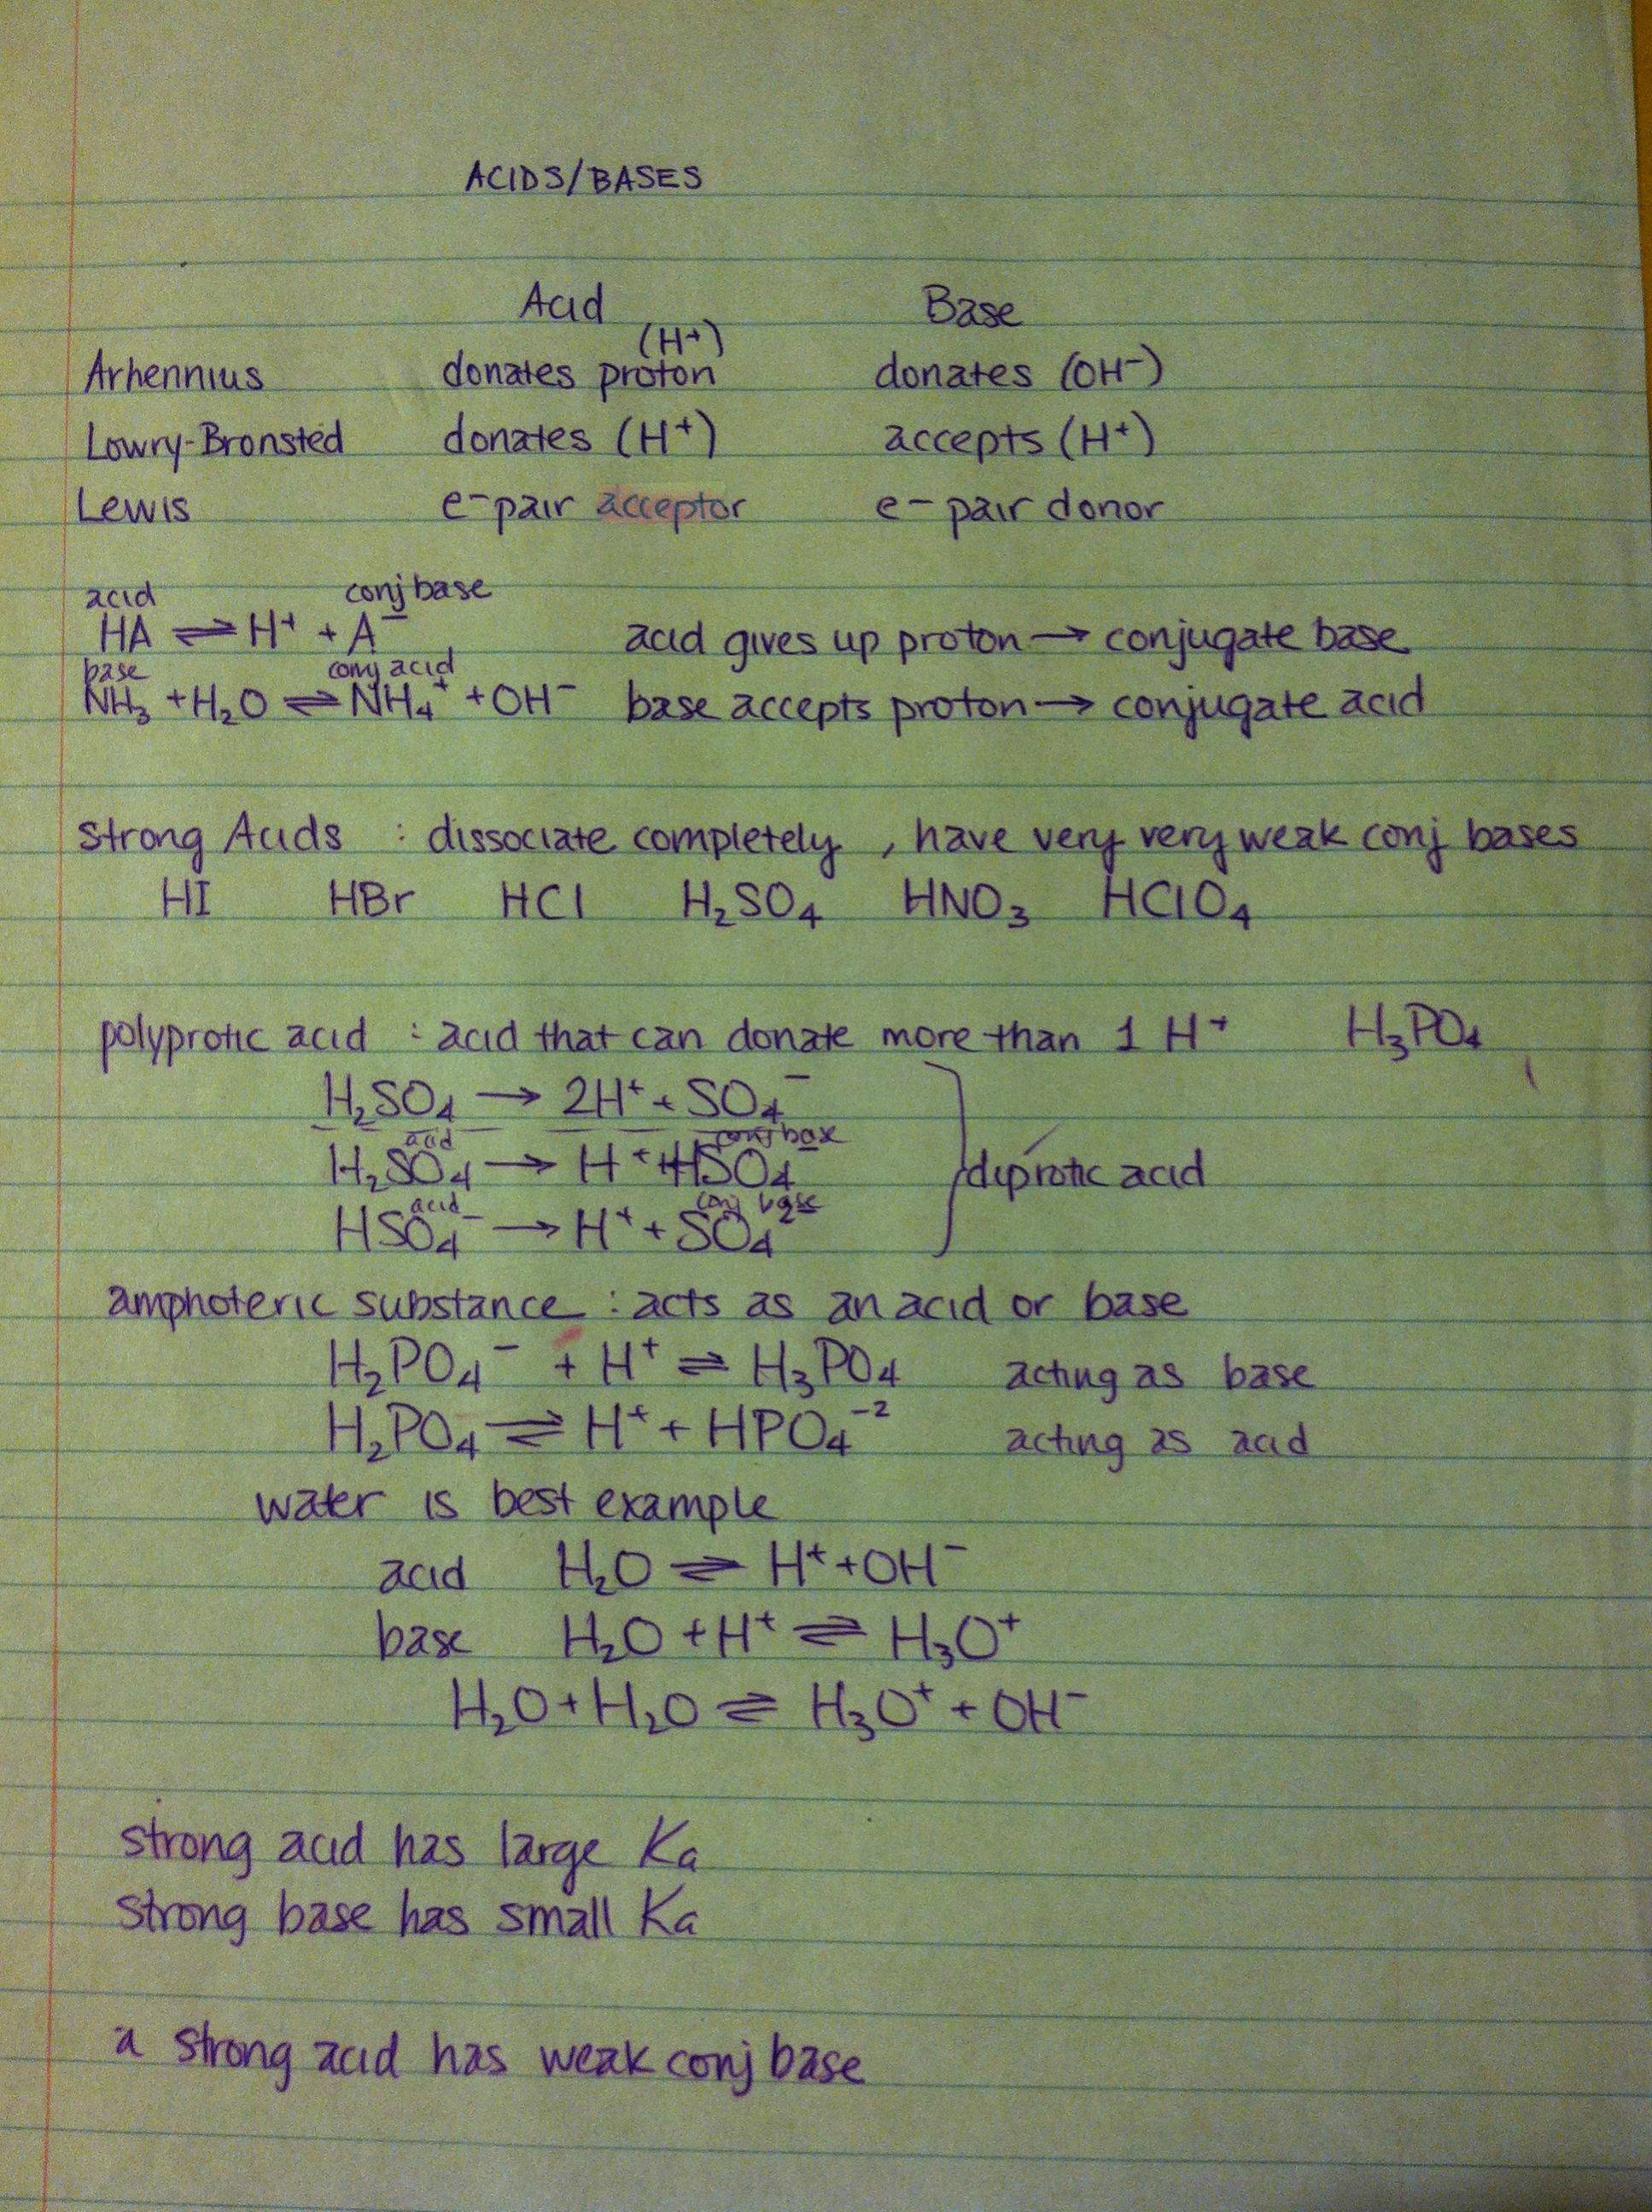 ACIDS/BASES
Acid Base
(H⁺)
Arhennius donates proton donates (OH⁻)
Lowry-Bronsted donates (H⁺) accepts (H⁺)
Lewis e⁻pair acceptor e- pair donor
acid conj base
HA ⇌ H⁺ + A⁻ acid gives up proton → conjugate base
base conj acid
NH₃ + H₂O ⇌ NH₄⁺ + OH⁻ base accepts proton → conjugate acid
Strong Acids : dissociate completely , have very very weak conj bases
HI HBr HCl H₂SO₄ HNO₃ HClO₄
polyprotic acid : acid that can donate more than 1 H⁺ H₃PO₄
H₂SO₄ → 2H⁺ + SO₄⁻
acid conj base
H₂SO₄ → H⁺ + HSO₄⁻ diprotic acid
acid conj base
HSO₄⁻ → H⁺ + SO₄⁻
amphoteric substance : acts as an acid or base
H₂PO₄⁻ + H⁺ ⇌ H₃PO₄ acting as base
H₂PO₄⁻ ⇌ H⁺ + HPO₄⁻² acting as acid
water is best example
acid H₂O ⇌ H⁺ + OH⁻
base H₂O + H⁺ ⇌ H₃O⁺
H₂O + H₂O ⇌ H₃O⁺ + OH⁻
strong acid has large Ka
strong base has small Ka
a strong acid has weak conj base